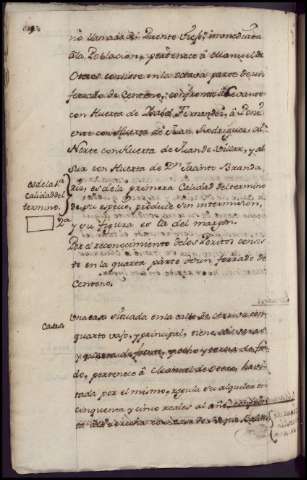 no llamada el Puente Viejo, immediata
a la Poblacion, pertenece â Manuel de
Otero consiste en la octava parte de un
ferrado de Centeno; confronta à Levante
con Huerta de Isabel Fernandez, à Poni-
ente con Huerta de Juan Rodriguez, al
Norte con Huerta de Juan de Villar, y al
Sur con Huerta de Dn. Jacinto Branda-
riz, es de la primera Calidad del termino
de su especie, produce sin intermision,
y su figura es la del margen
Por el reconocimiento de los Peritos consis-
te en la quarta parte de un ferrado de
Centeno.
es de la 1ª
Calidad del
termino
Casa
Una casa situada en la calle de con
quarto vajo, y principal, tiene varas
y quarta de frente, y ocho y tercia de fon-
do, pertenece â Manuel de Otero, havi-
tada por el mismo, regula su alquiler en
cinquenta y cinco reales al año,